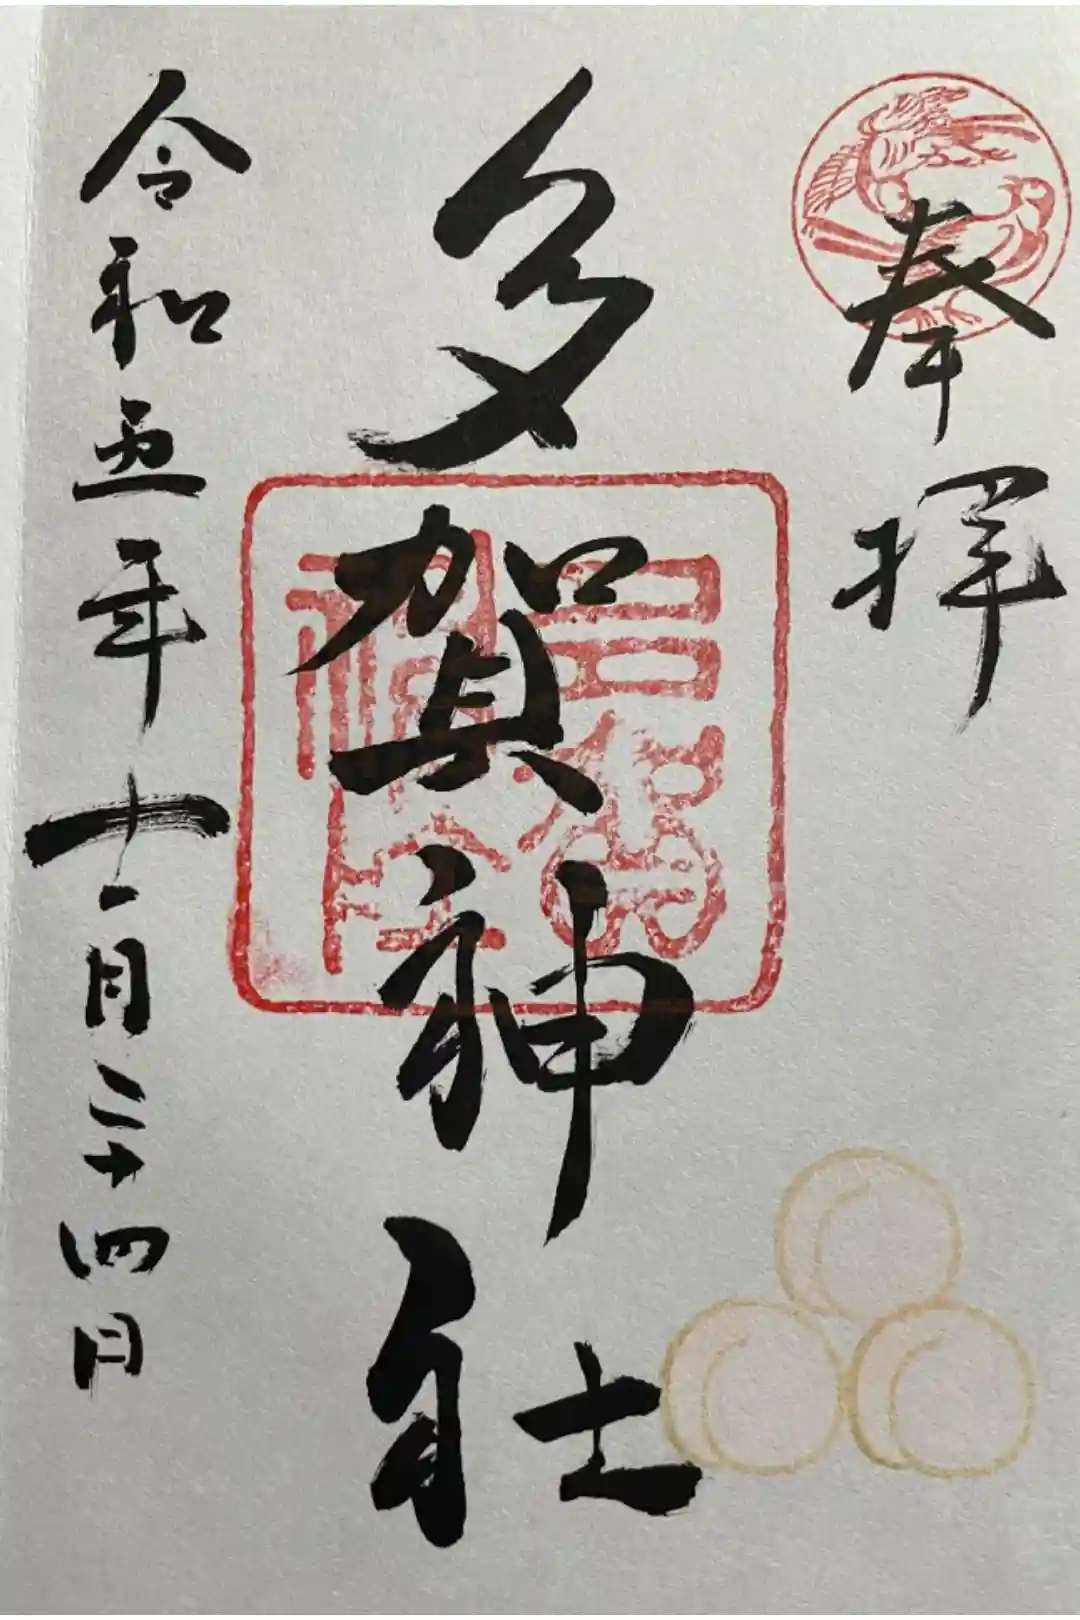 奉拝
多賀神社
令和五年十一月二十四日